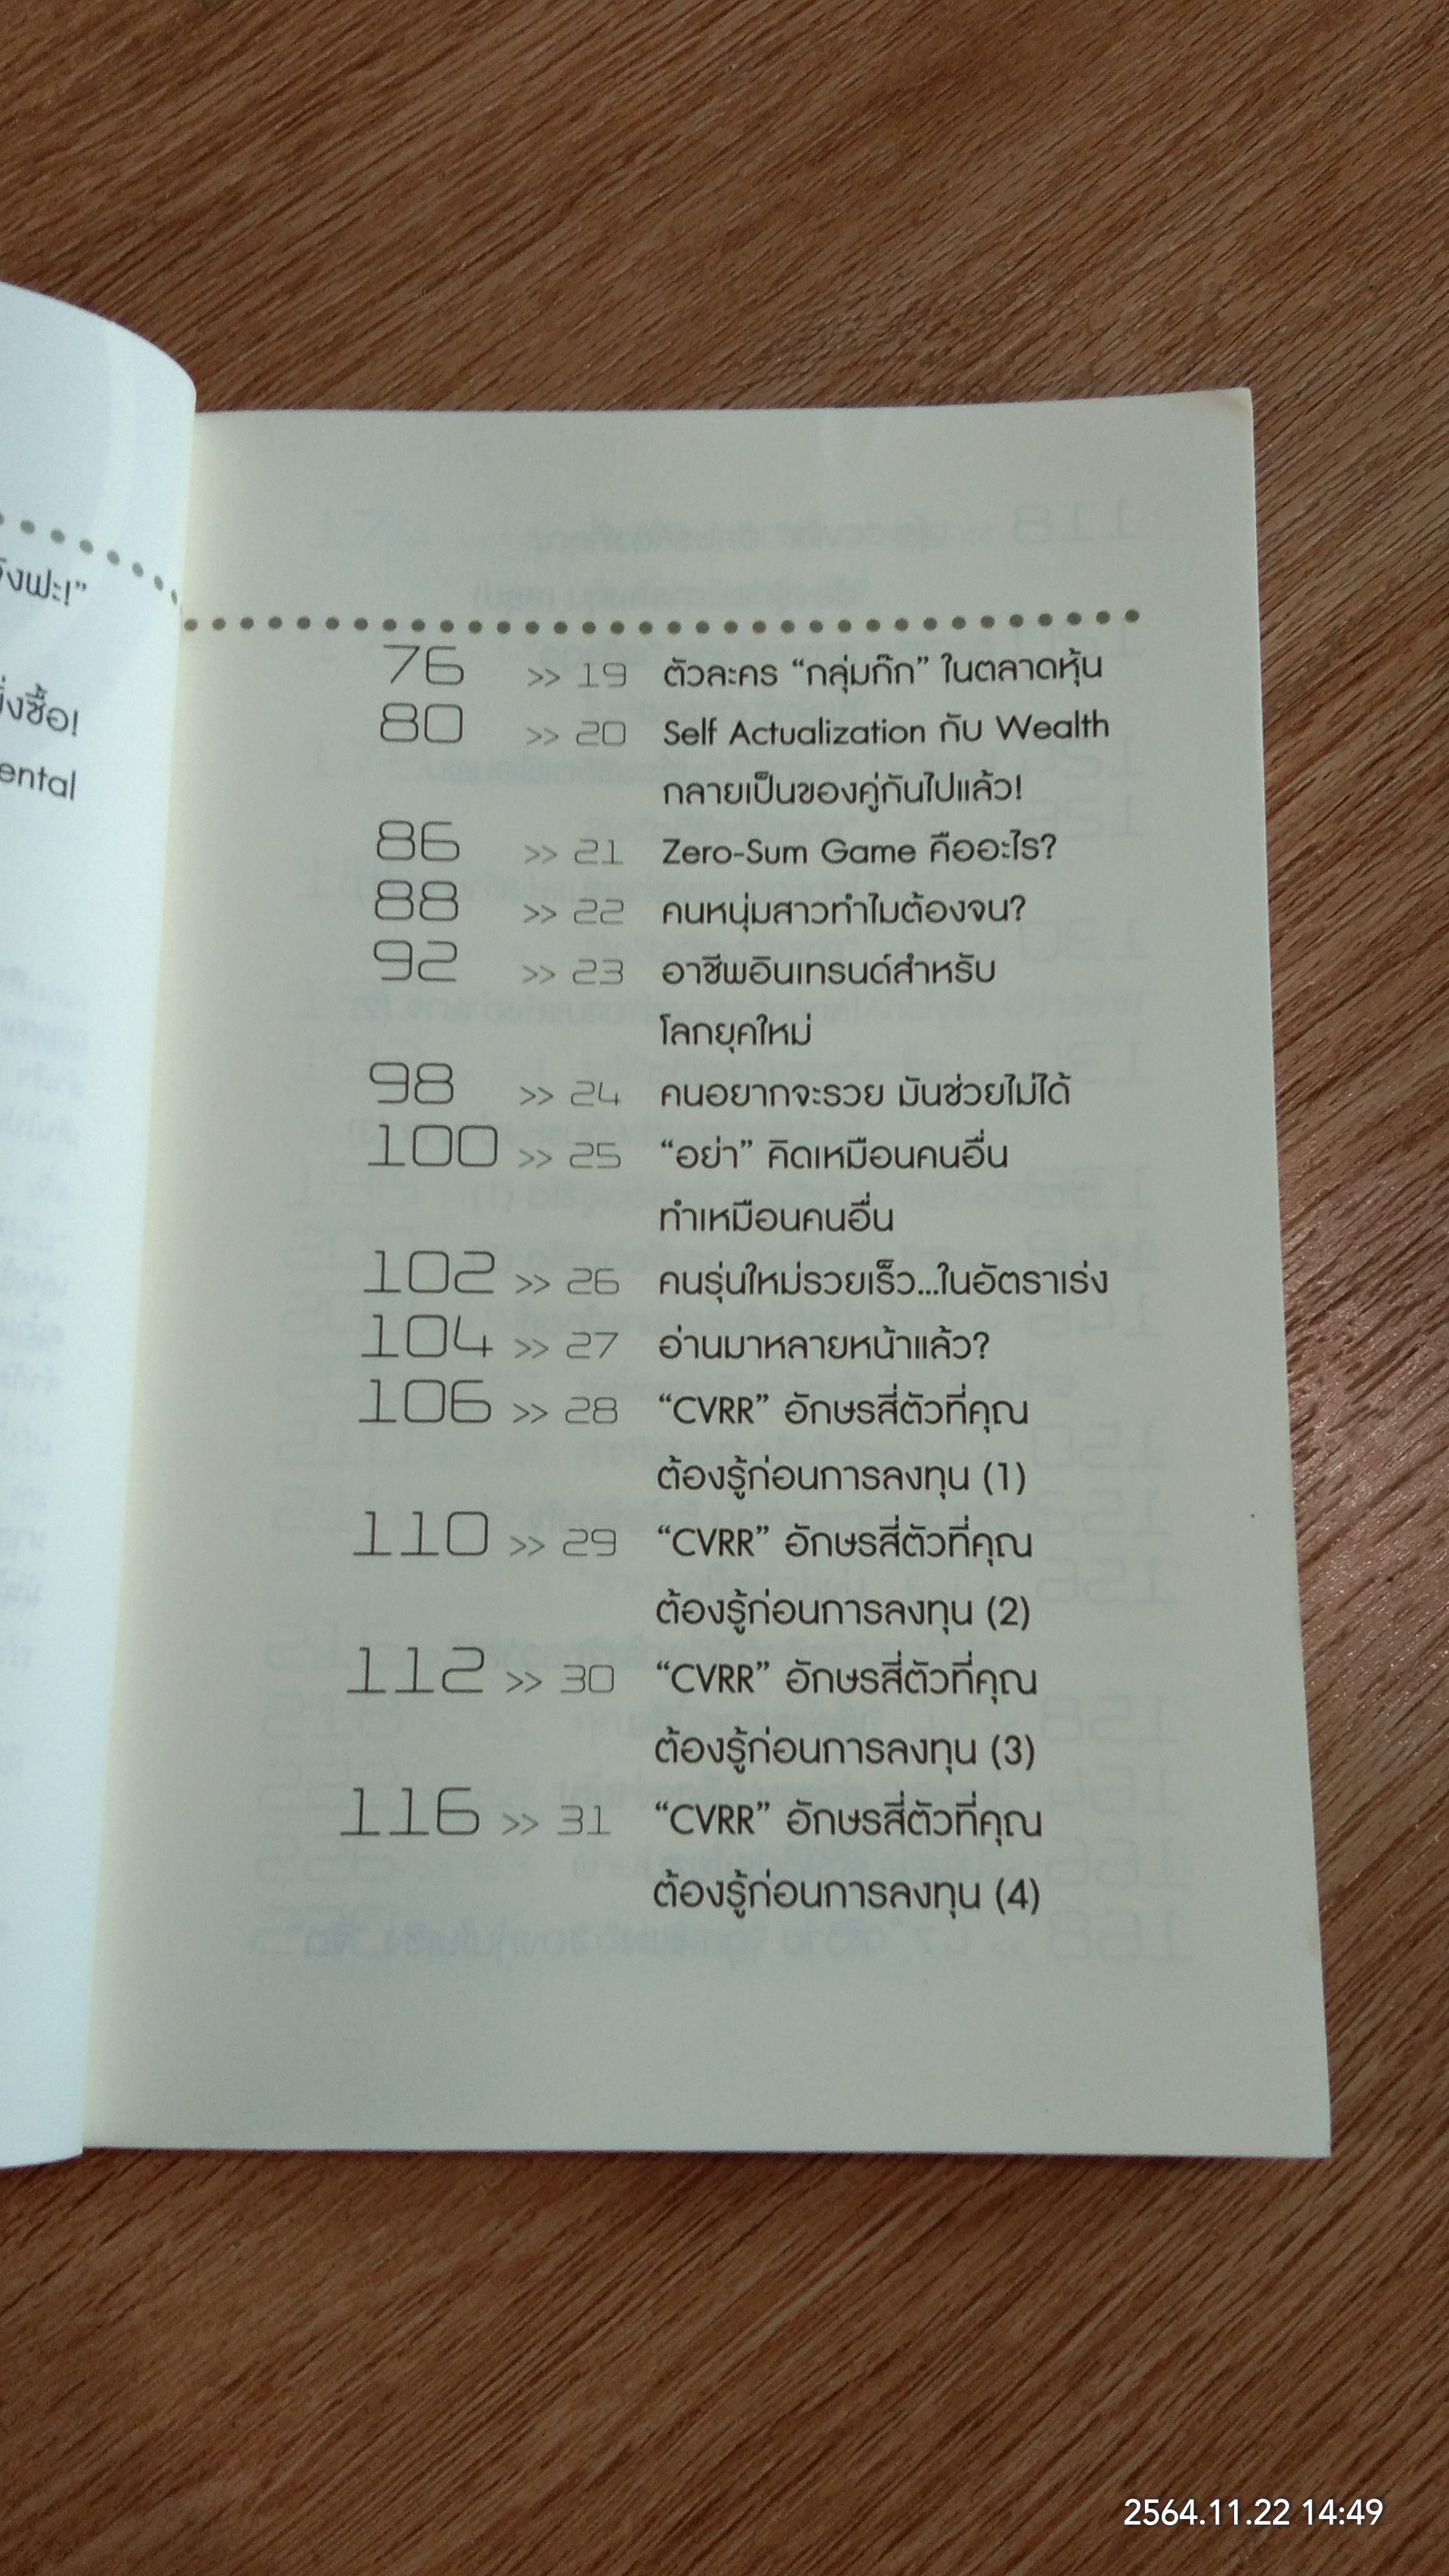 76 >> 19 ตัวละคร “กลุ่มก๊ก” ในตลาดหุ้น
80 >> 20 Self Actualization กับ Wealth
กลายเป็นของคู่กันไปแล้ว!
86 >> 21 Zero-Sum Game คืออะไร?
88 >> 22 คนหนุ่มสาวทำไมต้องจน?
92 >> 23 อาชีพอินเทรนด์สำหรับ
โลกยุคใหม่
98 >> 24 คนอยากจะรวย มันช่วยไม่ได้
100 >> 25 “อย่า” คิดเหมือนคนอื่น
ทำเหมือนคนอื่น
102 >> 26 คนรุ่นใหม่รวยเร็ว...ในอัตราเร่ง
104 >> 27 อ่านมาหลายหน้าแล้ว?
106 >> 28 “CVRR” อักษรสี่ตัวที่คุณ
ต้องรู้ก่อนการลงทุน (1)
110 >> 29 “CVRR” อักษรสี่ตัวที่คุณ
ต้องรู้ก่อนการลงทุน (2)
112 >> 30 “CVRR” อักษรสี่ตัวที่คุณ
ต้องรู้ก่อนการลงทุน (3)
116 >> 31 “CVRR” อักษรสี่ตัวที่คุณ
ต้องรู้ก่อนการลงทุน (4)
2564.11.22 14:49